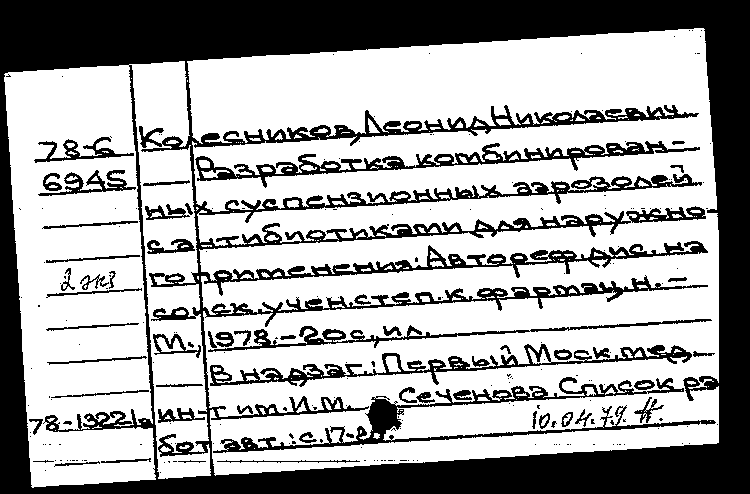 78-6 Колесников, Леонид Николаевич.
6945 Разработка комбинирован-
ных суспензионных аэрозолей
с антибиотиками для наружно-
2 экз го применения: Автореф. дис. на
соиск. учен. степ. к. фармац. н. -
М., 1978. - 20 с., ил.
В надзаг.: Первый Моск. мед.
78-13221а ин-т им. И. М. Сеченова. Список ра
бот авт.: с. 17-20.
10.04.79